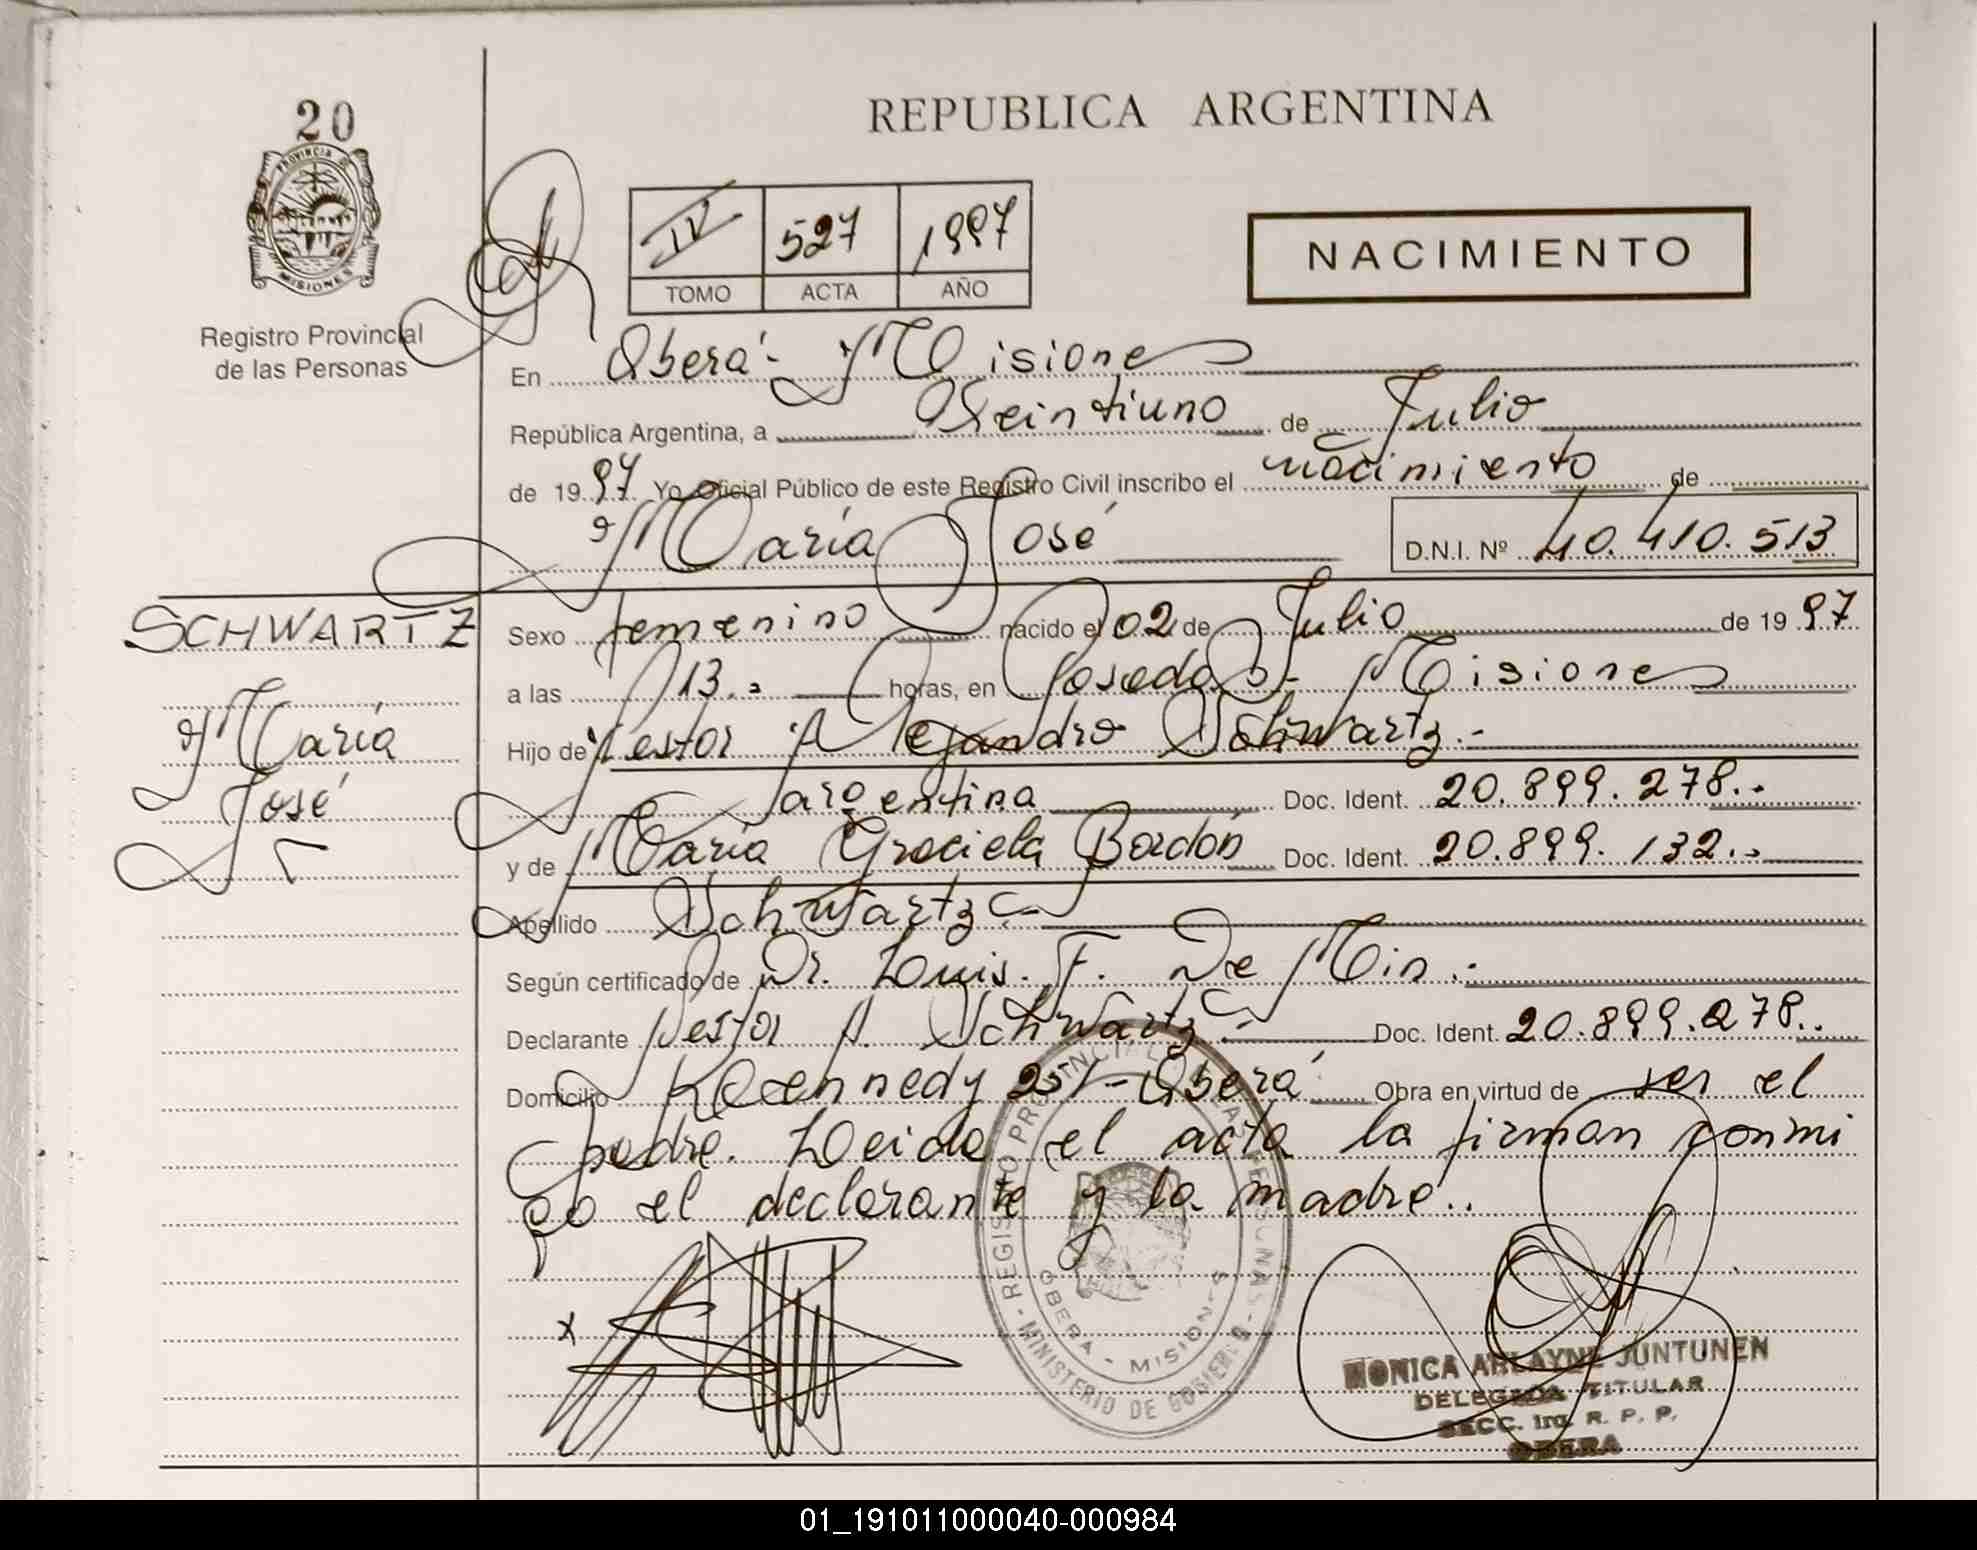 20
REPUBLICA ARGENTINA
PROVINCIA DE
MISIONES
Registro Provincial
de las Personas
IV 527 1997
TOMO ACTA AÑO
NACIMIENTO
En Oberá - Misiones
República Argentina, a Veintiuno de Julio
de 1997 Yo Oficial Público de este Registro Civil inscribo el nacimiento de
María José D.N.I. Nº 40.410.513
SCHWARTZ
María
José
Sexo femenino nacido el 02 de Julio de 1997
a las 13.- horas, en Posadas - Misiones
Hijo de Nestor Alejandro Schwartz.-
argentina Doc. Ident. 20.899.278.-
y de María Graciela Bordón Doc. Ident. 20.899.132.-
Apellido Schwartz.-
Según certificado de Dr. Luis. F. De Min.-
Declarante Nestor A. Schwartz.- Doc. Ident. 20.899.278..
Domicilio Kennedy 251 - Oberá Obra en virtud de ser el
padre. Leida el acta la firman conmi
go el declarante y la madre..
x
REGISTRO PROVINCIAL DE LAS PERSONAS - MINISTERIO DE GOBIERNO -
OBERA - MISIONES
MONICA ARLAYNE JUNTUNEN
DELEGADA TITULAR
SECC. 1ra. R. P. P.
OBERA
01_191011000040-000984